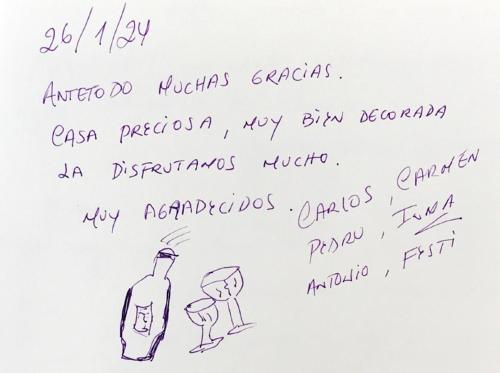 26/1/24
ANTETODO MUCHAS GRACIAS.
CASA PRECIOSA, MUY BIEN DECORADA
LA DISFRUTAMOS MUCHO.
MUY AGRADECIDOS.
CARLOS, CARMEN
PEDRO, INMA
ANTONIO, FESTI